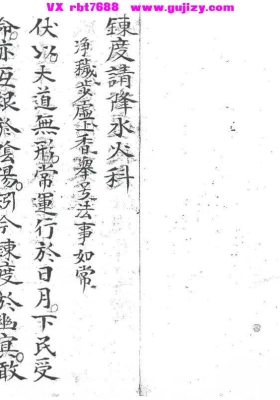 VX rbt7688 www.gujizy.com
鍊度請降水火科
淨穢步虛上香舉號法事如常
伏以天道無形常運行於日月下民受
命亦互隸於陰陽矧今諫度於幽冥敢